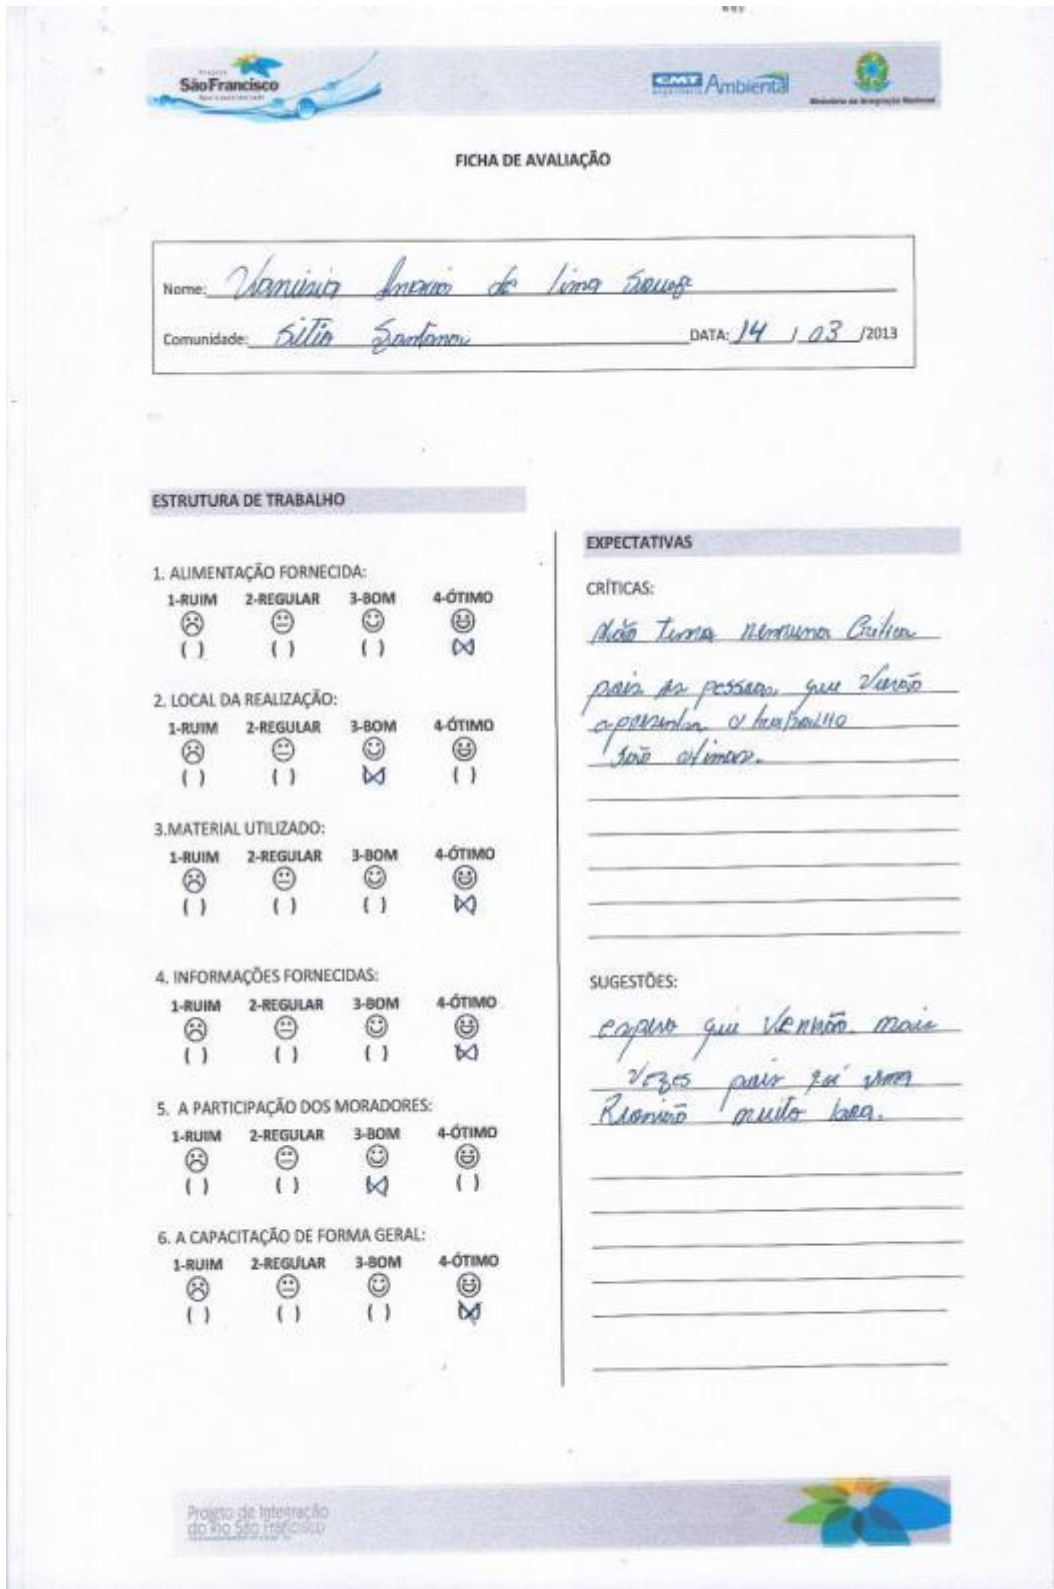 Projeto
São Francisco
CMT Ambiental
engenharia
Ministério da Integração Nacional
FICHA DE AVALIAÇÃO
Nome: de Lima
Comunidade: Sitio Santana DATA: 14 / 03 /2013
ESTRUTURA DE TRABALHO
1. ALIMENTAÇÃO FORNECIDA:
1-RUIM 2-REGULAR 3-BOM 4-ÓTIMO
( ) ( ) ( ) (X)
2. LOCAL DA REALIZAÇÃO:
1-RUIM 2-REGULAR 3-BOM 4-ÓTIMO
( ) ( ) (X) ( )
3.MATERIAL UTILIZADO:
1-RUIM 2-REGULAR 3-BOM 4-ÓTIMO
( ) ( ) ( ) (X)
4. INFORMAÇÕES FORNECIDAS:
1-RUIM 2-REGULAR 3-BOM 4-ÓTIMO
( ) ( ) ( ) (X)
5. A PARTICIPAÇÃO DOS MORADORES:
1-RUIM 2-REGULAR 3-BOM 4-ÓTIMO
( ) ( ) (X) ( )
6. A CAPACITAÇÃO DE FORMA GERAL:
1-RUIM 2-REGULAR 3-BOM 4-ÓTIMO
( ) ( ) ( ) (X)
EXPECTATIVAS
CRÍTICAS:
não nenhuma Critica
pois as pessoas que
o trabalho
são otimas.
SUGESTÕES:
espero que venhão mais
vezes pois foi uma
muito boa.
Projeto de Integração
do Rio São Francisco